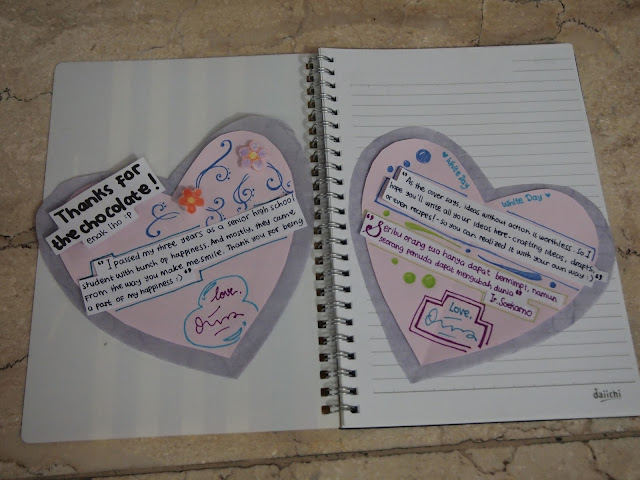 Thanks for
the chocolate!
Enak lho :p
" I passed my three years as a senior high school
student with bunch of happiness. And mostly, they came
from the way you make me smile. Thank you for being
a part of my happiness :) "
love,
White Day
White Day
" As the cover says, ideas without action is worthless. So I
hope you'll write all your ideas here - crafting ideas, drafts,
or even recipes! - so you can realized it with your own way ;) "
" Seribu orang tua hanya dapat bermimpi, namun
seorang pemuda dapat mengubah dunia "
Ir. Soekarno
Love,
daiichi